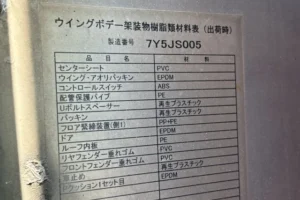 ウイングボデー架装物樹脂類材料表（出荷時）
製造番号 7Y5JS005
品目名 材料
センターシート PVC
ウイング・アオリパッキン EPDM
コントロールスイッチ ABS
配管保護パイプ PE
Uボルトスペーサー 再生プラスチック
パッキン 再生プラスチック
フロア緊締装置(側1) PP+PE
ドア EPDM
ルーフ内板 PE
リヤフェンダー垂れゴム PVC
フロントフェンダー垂れゴム PVC
笠止め 再生プラスチック
クッション1セット目 EPDM